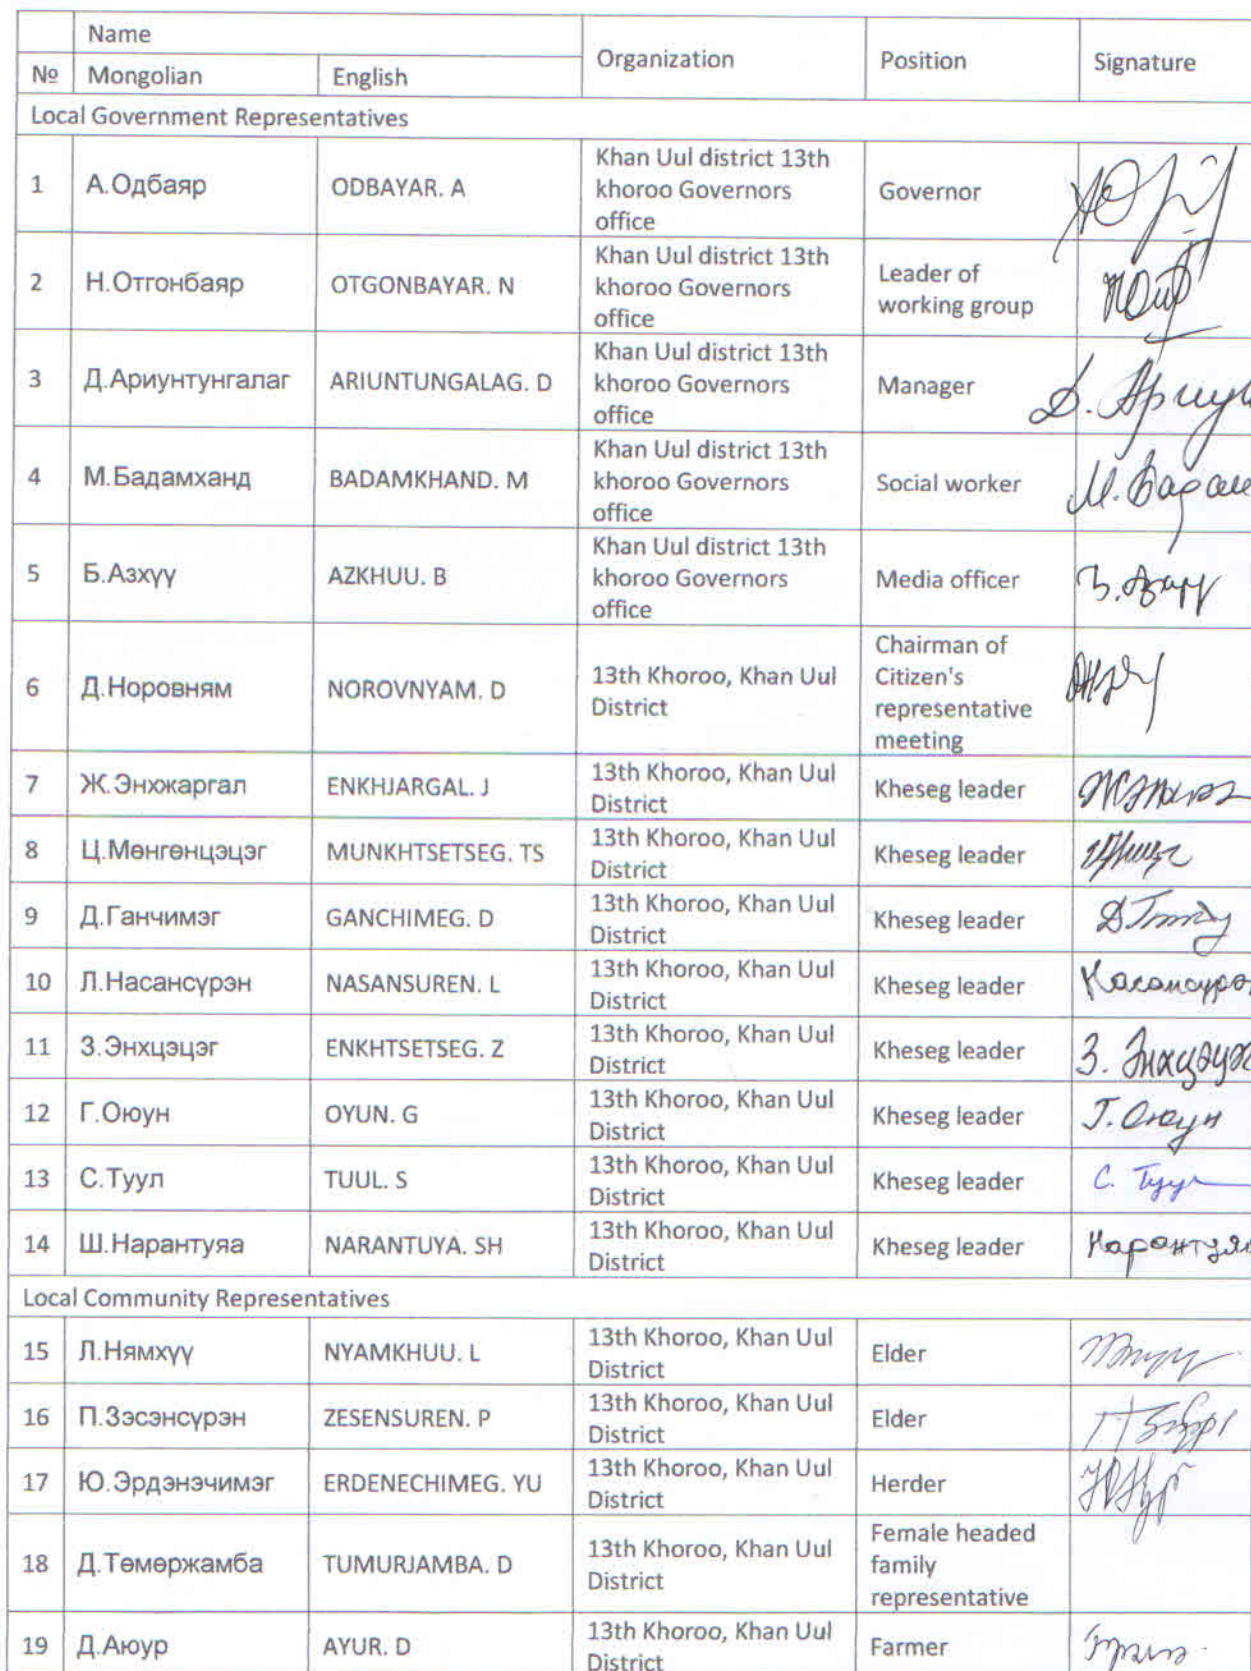 Name
Organization Position Signature
№ Mongolian English
Local Government Representatives
1 А.Одбаяр ODBAYAR. A Khan Uul district 13th khoroo Governors office Governor
2 Н.Отгонбаяр OTGONBAYAR. N Khan Uul district 13th khoroo Governors office Leader of working group
3 Д.Ариунтунгалаг ARIUNTUNGALAG. D Khan Uul district 13th khoroo Governors office Manager Д. Ариун
4 М.Бадамханд BADAMKHAND. M Khan Uul district 13th khoroo Governors office Social worker М. Бадам
5 Б.Азхүү AZKHUU. B Khan Uul district 13th khoroo Governors office Media officer
6 Д.Норовням NOROVNYAM. D 13th Khoroo, Khan Uul District Chairman of Citizen's representative meeting
7 Ж.Энхжаргал ENKHJARGAL. J 13th Khoroo, Khan Uul District Kheseg leader
8 Ц.Мөнгөнцэцэг MUNKHTSETSEG. TS 13th Khoroo, Khan Uul District Kheseg leader
9 Д.Ганчимэг GANCHIMEG. D 13th Khoroo, Khan Uul District Kheseg leader
10 Л.Насансүрэн NASANSUREN. L 13th Khoroo, Khan Uul District Kheseg leader Насансүрэн
11 З.Энхцэцэг ENKHTSETSEG. Z 13th Khoroo, Khan Uul District Kheseg leader З. Энхцэцэг
12 Г.Оюун OYUN. G 13th Khoroo, Khan Uul District Kheseg leader Г. Оюун
13 С.Туул TUUL. S 13th Khoroo, Khan Uul District Kheseg leader С. Туул
14 Ш.Нарантуяа NARANTUYA. SH 13th Khoroo, Khan Uul District Kheseg leader Нарантуяа
Local Community Representatives
15 Л.Нямхүү NYAMKHUU. L 13th Khoroo, Khan Uul District Elder
16 П.Зэсэнсүрэн ZESENSUREN. P 13th Khoroo, Khan Uul District Elder
17 Ю.Эрдэнэчимэг ERDENECHIMEG. YU 13th Khoroo, Khan Uul District Herder
18 Д.Төмөржамба TUMURJAMBA. D 13th Khoroo, Khan Uul District Female headed family representative
19 Д.Аюур AYUR. D 13th Khoroo, Khan Uul District Farmer